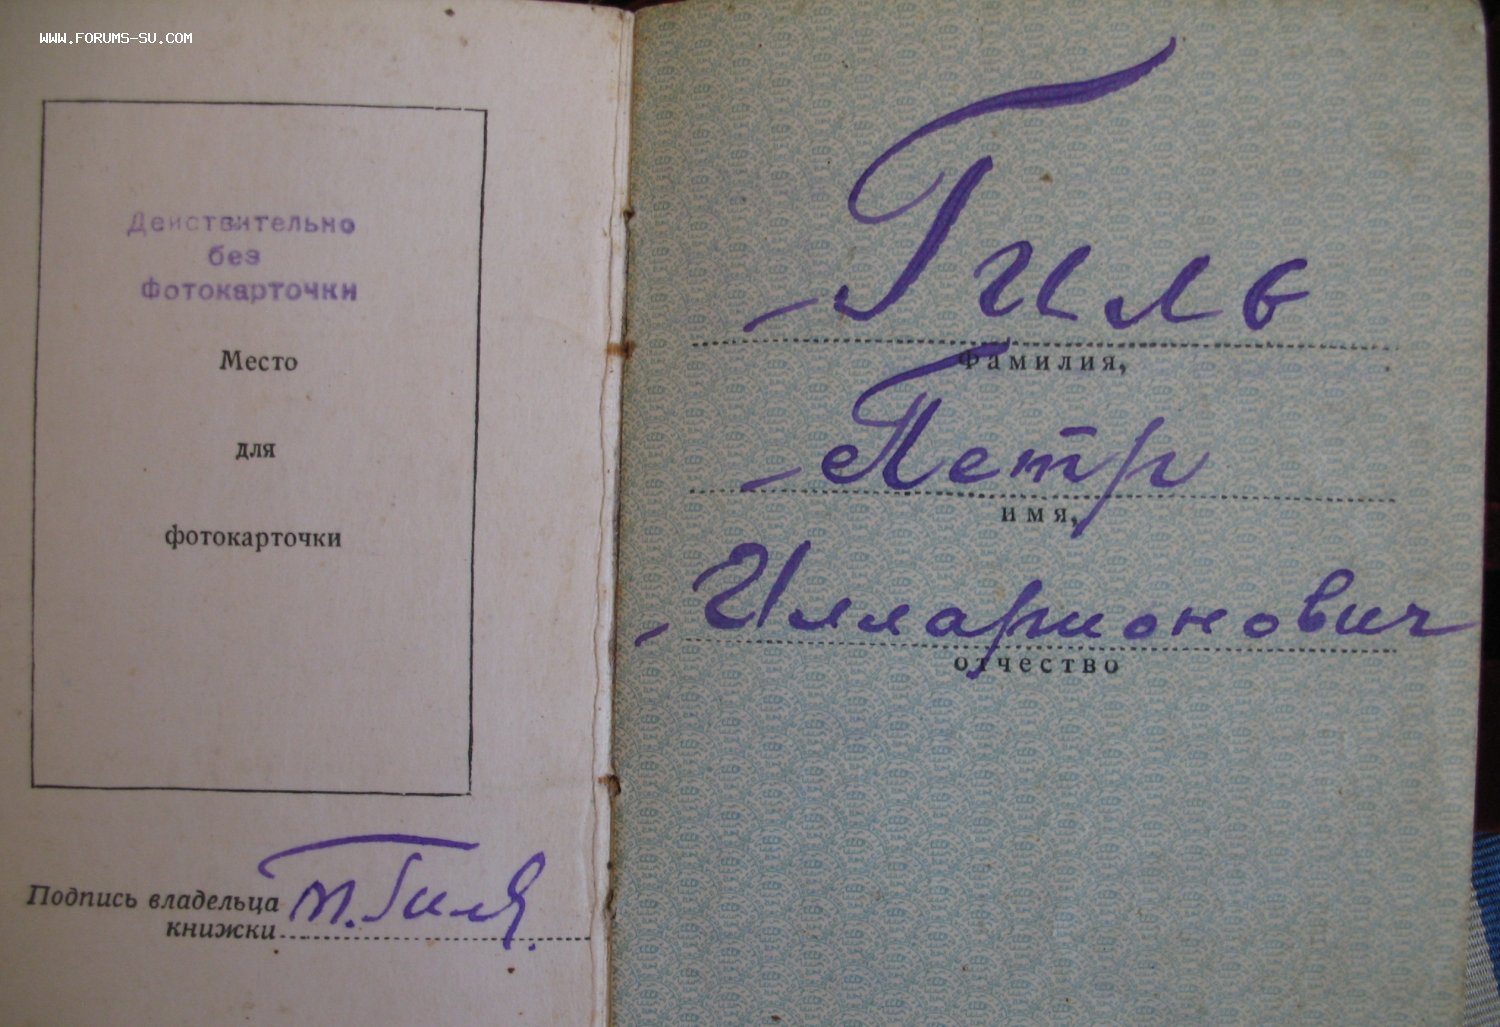 WWW.FORUMS-SU.COM
Действительно
без
Фотокарточки
Место
для
фотокарточки
Подпись владельца
книжки
П. Гиль.
Гиль
Фамилия,
Петр
имя,
Илларионович
отчество